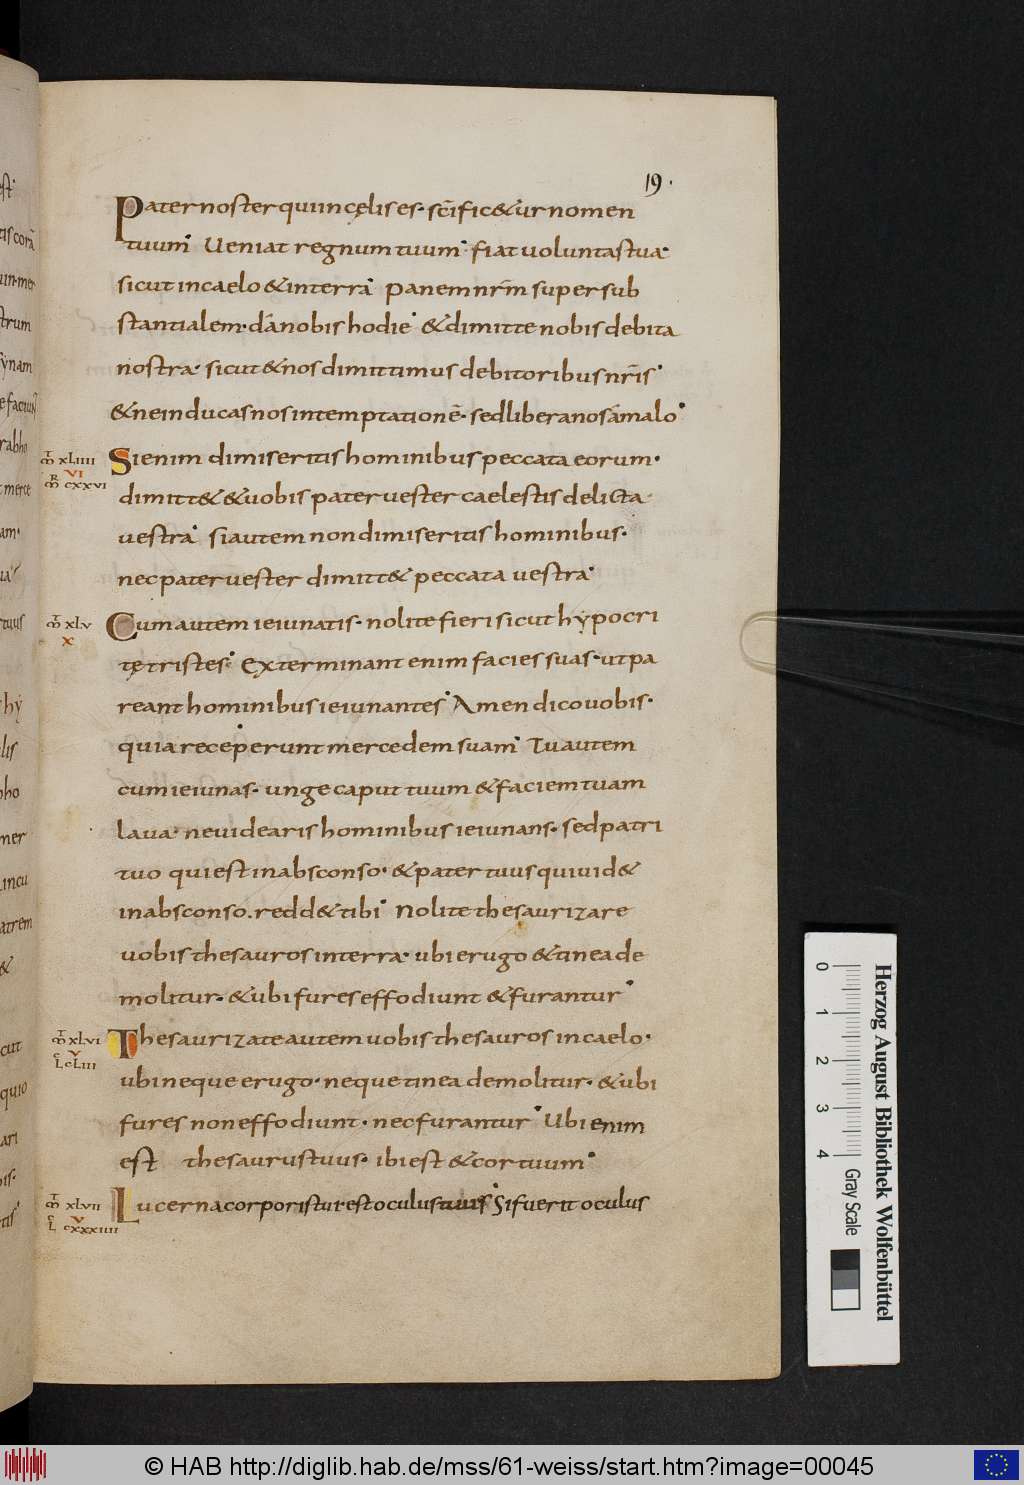 19.
Pater noster qui in cęlis es. sc̄ific&ur nomen
tuum. Ueniat regnum tuum. fiat uoluntas tua.
sicut in caelo & in terra. Panem nr̄m super sub
stantialem. da nobis hodie. & dimitte nobis debita
nostra. sicut & nos dimittimus debitoribus nr̄is.
& ne inducas nos in temptationē. sed libera nos a malo.
Si enim dimiseritis hominibus peccata eorum.
dimitt& & uobis pater uester caelestis delicta
uestra. si autem non dimiseritis hominibus.
nec pater uester dimitt& peccata uestra.
Cum autem ieiunatis. nolite fieri sicut hẏpocri
tę tristes. Exterminant enim facies suas. ut pa
reant hominibus ieiunantes. Amen dico uobis.
quia receperunt mercedem suam. Tu autem
cum ieiunas. unge caput tuum & faciem tuam
laua. ne uidearis hominibus ieiunans. sed patri
tuo qui est in absconso. & pater tuus qui uid&
in absconso. redd& tibi. Nolite thesaurizare
uobis thesauros in terra. ubi erugo & tinea de
molitur. & ubi fures effodiunt & furantur.
Thesaurizate autem uobis thesauros in caelo.
ubi neque erugo. neque tinea demolitur. & ubi
fures non effodiunt. nec furantur. Ubi enim
est thesaurus tuus. ibi est & cor tuum.
Lucerna corporis tui est oculus tuus. Si fuerit oculus
xLIIII
VI
cxxvI
xLv
x
xLvI
v
cLIII
xLvII
v
cxxxIIII
Herzog August Bibliothek Wolfenbüttel
0 1 2 3 4 Gray Scale
© HAB http://diglib.hab.de/mss/61-weiss/start.htm?image=00045